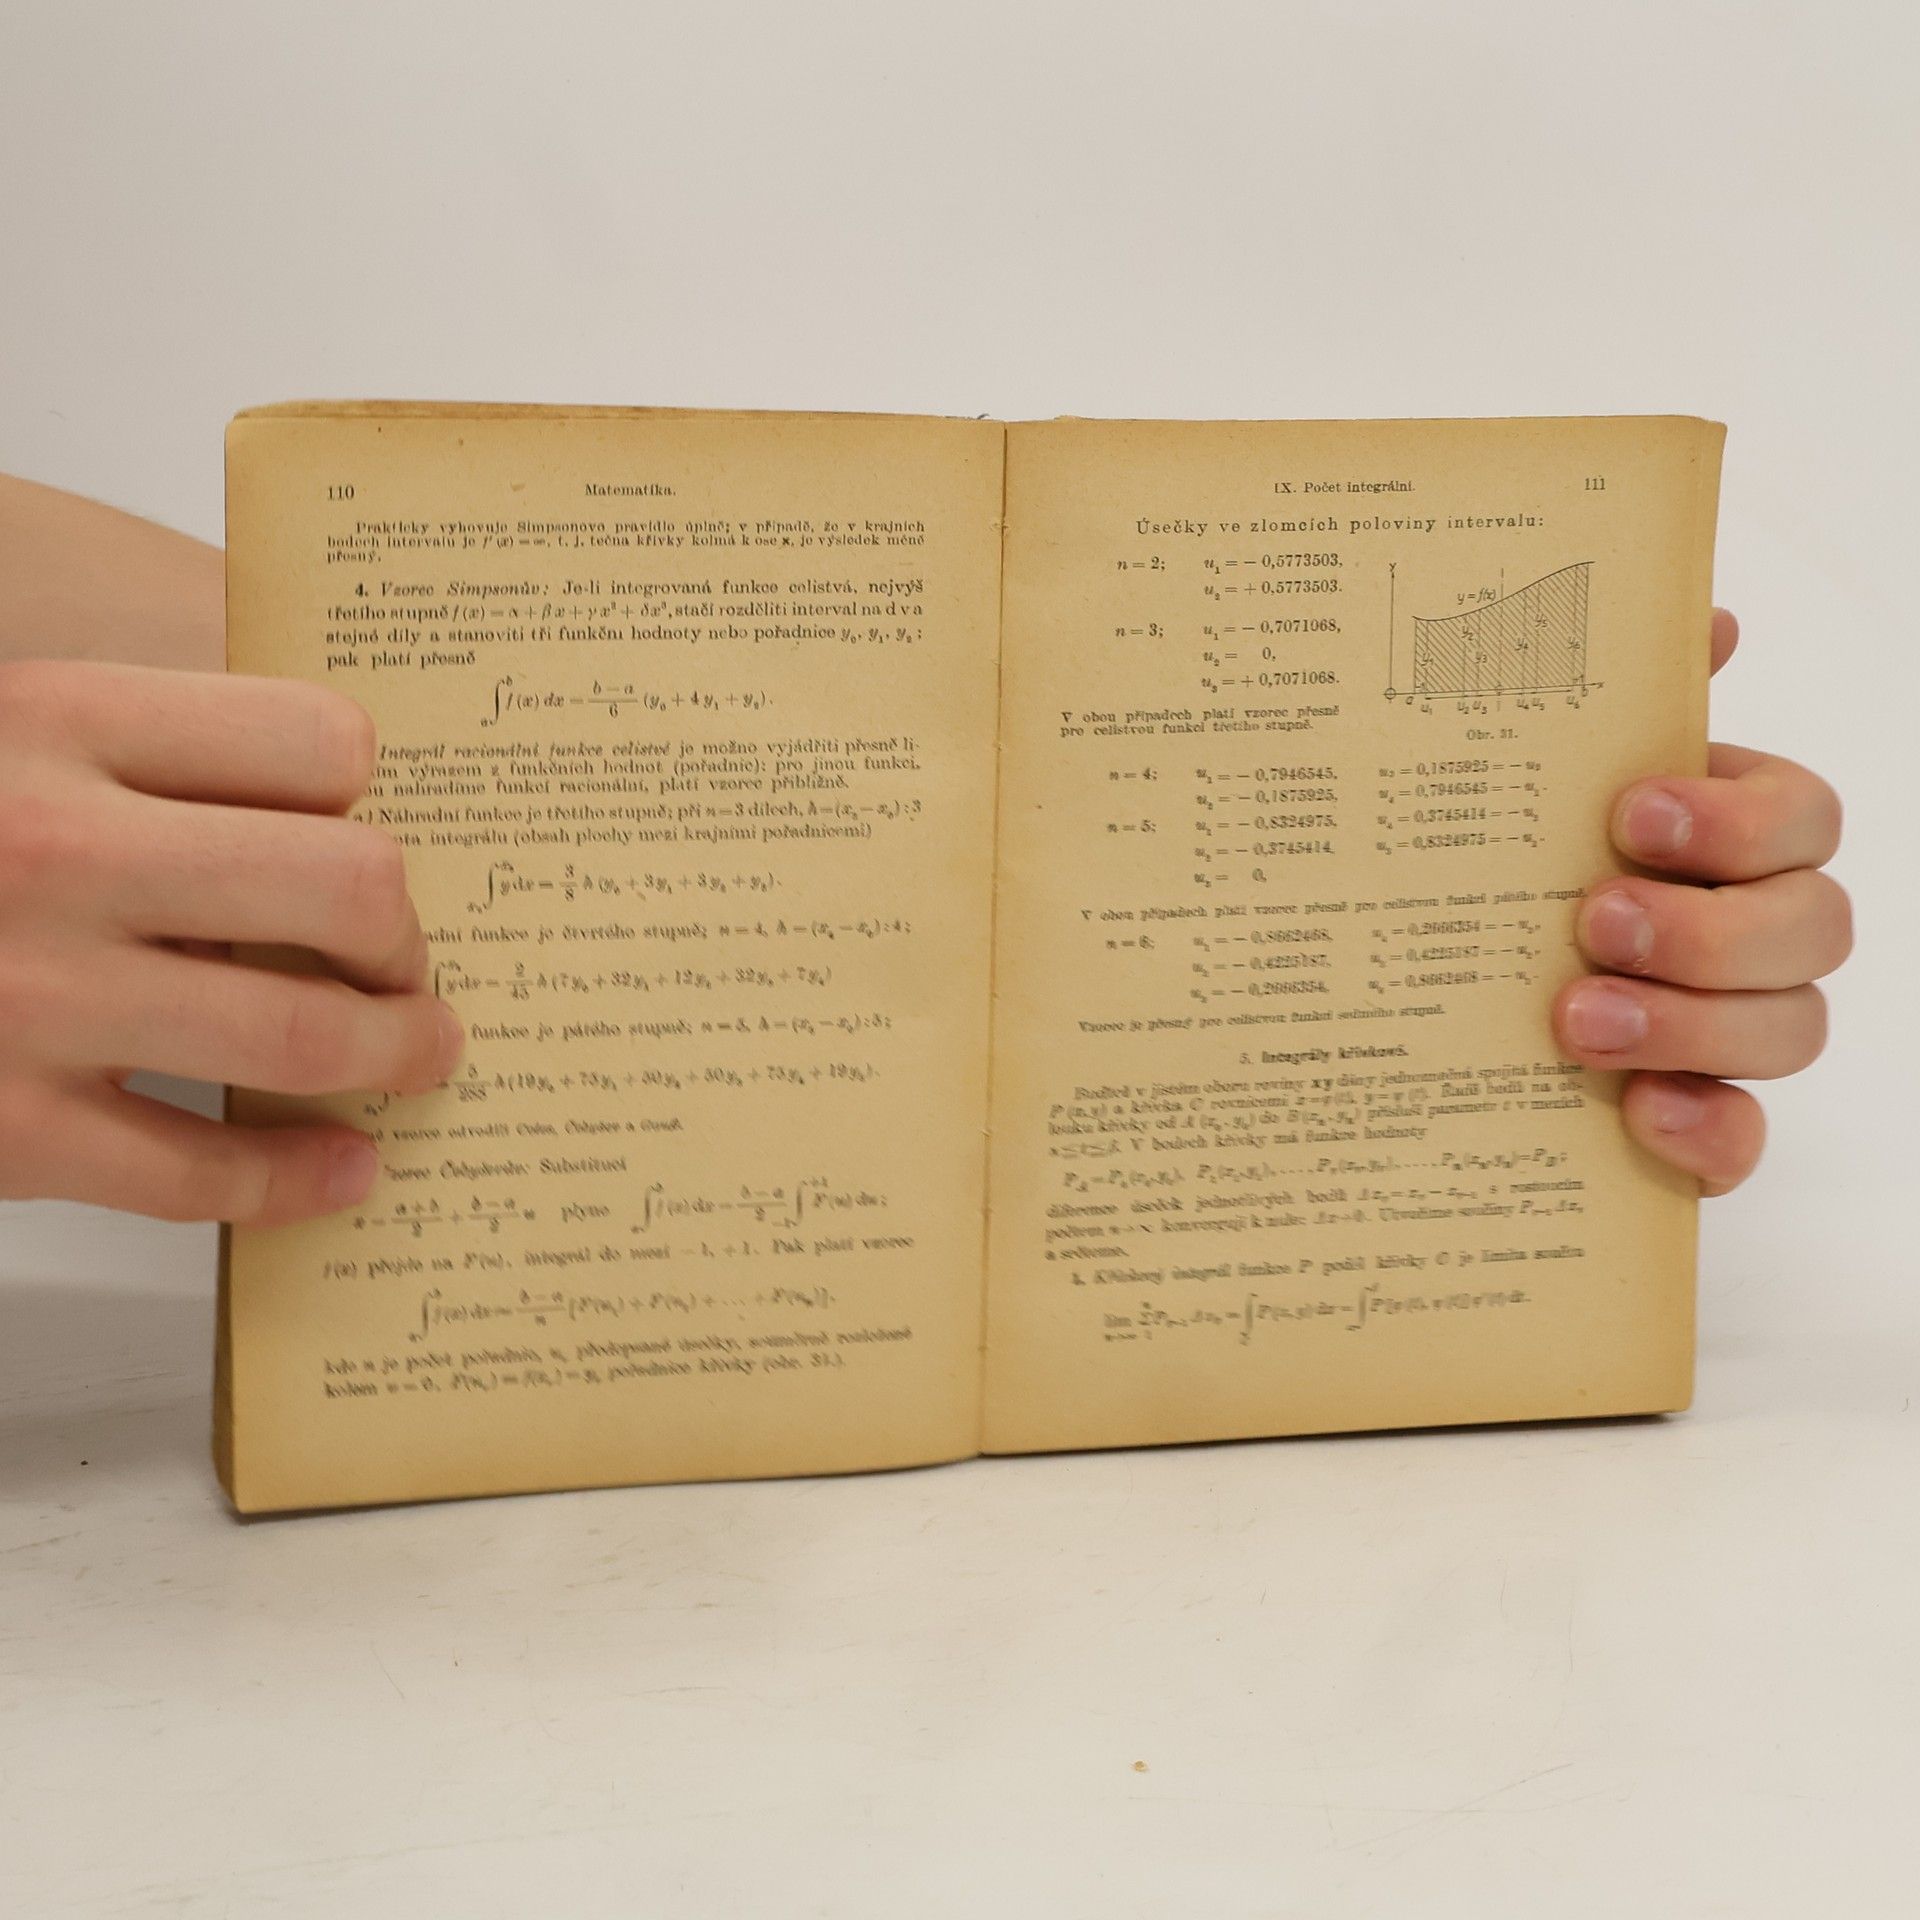 110 Matematika.
Prakticky vyhovuje Simpsonovo pravidlo úplně; v případě, že v krajních
bodech intervalu je f' (x) = ∞, t. j. tečna křivky kolmá k ose x, je výsledek méně
přesný.
4. Vzorec Simpsonův: Je-li integrovaná funkce celistvá, nejvýš
třetího stupně f (x) = α + βx + γx² + δx³, stačí rozděliti interval na dva
stejné díly a stanoviti tři funkční hodnoty nebo pořadnice y₀, y₁, y₂;
pak platí přesně
∫ₐᵇ f (x) dx = (b − a)/6 (y₀ + 4 y₁ + y₂).
Integrál racionální funkce celistvé je možno vyjádřiti přesně li-
výrazem z funkčních hodnot (pořadnic): pro jinou funkci,
nahradíme funkcí racionální, platí vzorec přibližně.
a) Náhradní funkce je třetího stupně; při n = 3 dílech, h = (x₃ − x₀) : 3
integrálu (obsah plochy mezi krajními pořadnicemi)
∫ y dx = 3/8 h (y₀ + 3 y₁ + 3 y₂ + y₃).
funkce je čtvrtého stupně; n = 4, h = (x₄ − x₀) : 4;
∫ y dx = 2/45 h (7 y₀ + 32 y₁ + 12 y₂ + 32 y₃ + 7 y₄)
funkce je pátého stupně; n = 5, h = (x₅ − x₀) : 5;
= 5/288 h (19 y₀ + 75 y₁ + 50 y₂ + 50 y₃ + 75 y₄ + 19 y₅).
vzorce odvodili Cotes, Čebyšev a Gauß.
Čebyševův: Substitucí
x = (a + b)/2 + (b − a)/2 u plyne ∫ₐᵇ f (x) dx = (b − a)/2 ∫₋₁⁺¹ F (u) du;
f (x) přejde na F (u), integrál do mezí − 1, + 1. Pak platí vzorec
∫ₐᵇ f (x) dx = (b − a)/n [F (u₁) + F (u₂) + ... + F (uₙ)],
kde n je počet pořadnic, předepsané úsečky, souměrně rozložené
kolem u = 0, pořadnice křivky (obr. 31.).
IX. Počet integrální. 111
Úsečky ve zlomcích poloviny intervalu:
n = 2; u₁ = − 0,5773503,
u₂ = + 0,5773503.
n = 3; u₁ = − 0,7071068,
u₂ = 0,
u₃ = + 0,7071068.
V obou případech platí vzorec přesně
pro celistvou funkci třetího stupně.
y
y = f(x)
y₁ y₂ y₃ y₄ y₅ y₆
a u₁ u₂ u₃ u₄ u₅ u₆ b x
Obr. 31.
n = 4; u₁ = − 0,7946545, u₃ = 0,1875925 = − u₂
u₂ = − 0,1875925, u₄ = 0,7946545 = − u₁.
n = 5; u₁ = − 0,8324975, u₄ = 0,3745414 = − u₂
u₂ = − 0,3745414, u₅ = 0,8324975 = − u₁.
u₃ = 0,
V obou případech platí vzorec přesně pro celistvou funkci pátého stupně.
n = 6; u₁ = − 0,8662468, u₄ = 0,2666354 = − u₃,
u₂ = − 0,4225187, u₅ = 0,4225187 = − u₂,
u₃ = − 0,2666354, u₆ = 0,8662468 = − u₁.
Vzorec je přesný pro celistvou funkci sedmého stupně.
5. Integrály křivkové.
Buďtež v jistém oboru roviny xy dány jednoznačná spojitá funkce
P (x, y) a křivka C rovnicemi x = φ (t), y = ψ (t). Řadě bodů na ob-
louku křivky od A (x₀, y₀) do B (xₙ, yₙ) přísluší parametr t v mezích
α ≤ t ≤ β. V bodech křivky má funkce hodnoty
diference úseček jednotlivých bodů s rostoucím
počtem n → ∞ konvergují k nule: Δx → 0. Utvořme součiny
a sečteme.
Křivkový integrál funkce P podél křivky C je limita součtu